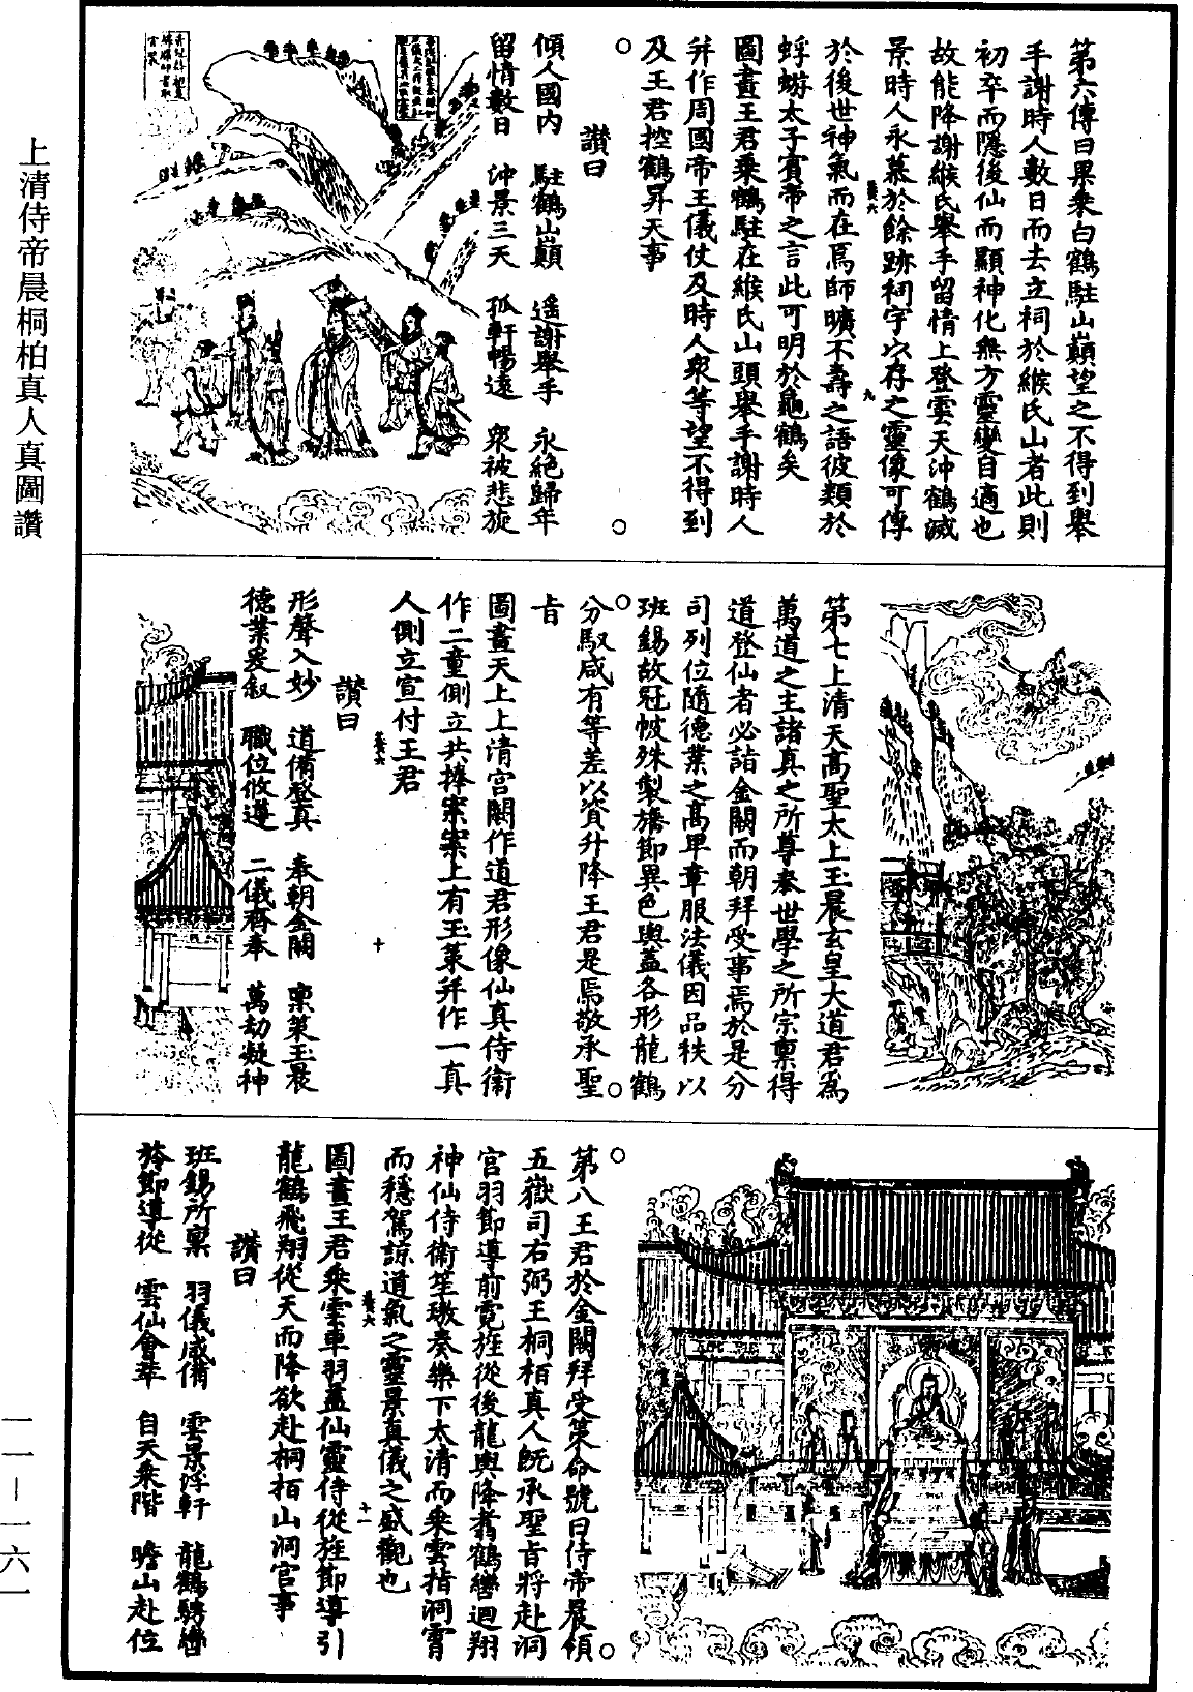 上清侍帝晨桐柏真人真圖讚
第六傳曰果乘白鶴駐山巔望之不得到舉
手謝時人數日而去立祠於緱氏山者此則
初卒而隱後仙而顯神化無方靈變自適也
故能降謝緱氏舉手留情上登雲天沖鶴滅
景時人永慕於餘跡祠宇以存之靈像可傳
於後世神氣而在焉師曠不壽之語彼類於
蜉蝣太子賓帝之言此可明於龜鶴矣
圖畫王君乘鶴駐在緱氏山頭舉手謝時人
并作周國帝王儀仗及時人衆等望不得到
及王君控鶴昇天事
讚曰
傾人國内 駐鶴山巔 遥謝舉手 永絶歸年
留情數日 沖景三天 孤軒暢遠 衆被悲旋
九
第七上清天高聖太上玉晨玄皇大道君爲
萬道之主諸真之所尊奉世學之所宗禀得
道登仙者必詣金闕而朝拜受事焉於是分
司列位隨德業之高卑章服法儀因品秩以
班錫故冠帔殊製旛節異色輿蓋各形龍鶴
分馭咸有等差以資升降王君是焉敬承聖
旨
圖畫天上上清宫闕作道君形像仙真侍衛
作二童側立共捧案案上有玉策并作一真
人側立宣付王君
讚曰
形聲入妙 道備登真 奉朝金闕 禀策玉晨
德業爰叙 職位攸遵 二儀齊奉 萬劫凝神
十
第八王君於金闕拜受策命號曰侍帝晨領
五嶽司右弼王桐栢真人既承聖旨將赴洞
宫羽節導前霓旌從後龍輿降蓋鶴轡迴翔
神仙侍衛笙璈奏樂下太清而乘雲指洞霄
而穩駕諒道氣之靈景真儀之盛觀也
圖畫王君乘雲車羽蓋仙靈侍從旌節導引
龍鶴飛翔從天而降欲赴桐栢山洞宫事
讚曰
班錫所禀 羽儀咸備 雲景浮軒 龍鶴騁轡
旍節導從 雲仙會萃 自天乘階 瞻山赴位
十一
一一－一六一